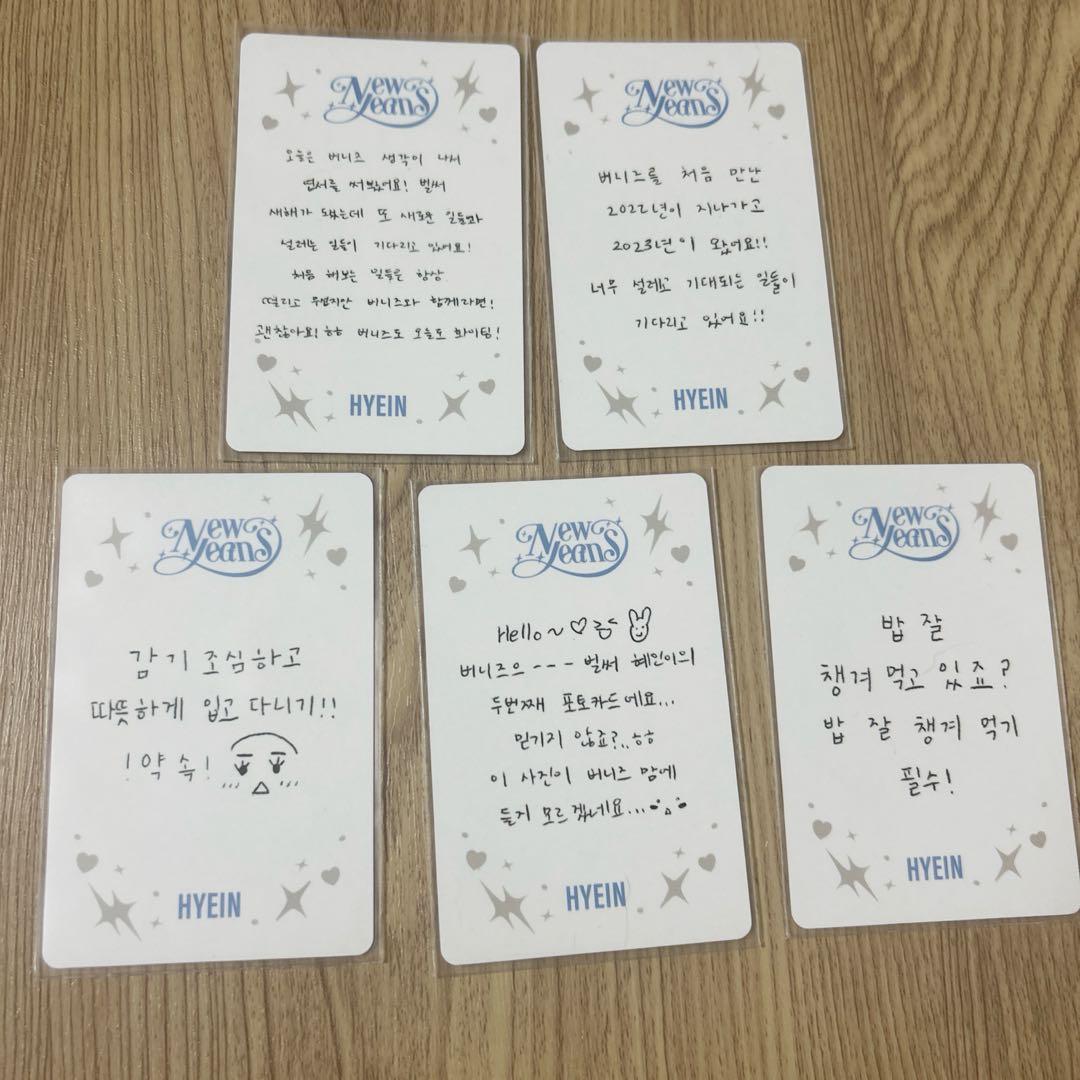 New
Jeans
오늘은 버니즈 생각이 나서
엽서를 써봤어요! 벌써
새해가 됐는데 또 새로운 일들과
설레는 일들이 기다리고 있어요!
처음 해보는 일들은 항상
떨리고 무섭지만 버니즈와 함께라면!
괜찮아요! ㅎㅎ 버니즈도 오늘도 화이팅!
HYEIN
New
Jeans
버니즈를 처음 만난
2022년이 지나가고
2023년이 왔어요!!
너무 설레고 기대되는 일들이
기다리고 있어요!!
HYEIN
New
Jeans
감기 조심하고
따뜻하게 입고 다니기!!
!약속!
HYEIN
New
Jeans
Hello~♡
버니즈으--- 벌써 혜인이의
두번째 포토카드에요...
믿기지 않죠?..ㅎㅎ
이 사진이 버니즈 맘에
들지 모르겠네요...
HYEIN
New
Jeans
밥 잘
챙겨 먹고 있죠?
밥 잘 챙겨 먹기
필수!
HYEIN